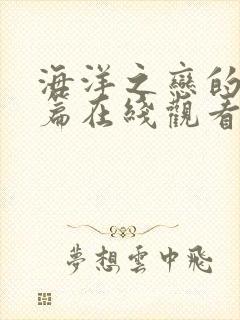 海洋之戀的
篇在綫觀看
夢想雲中飛